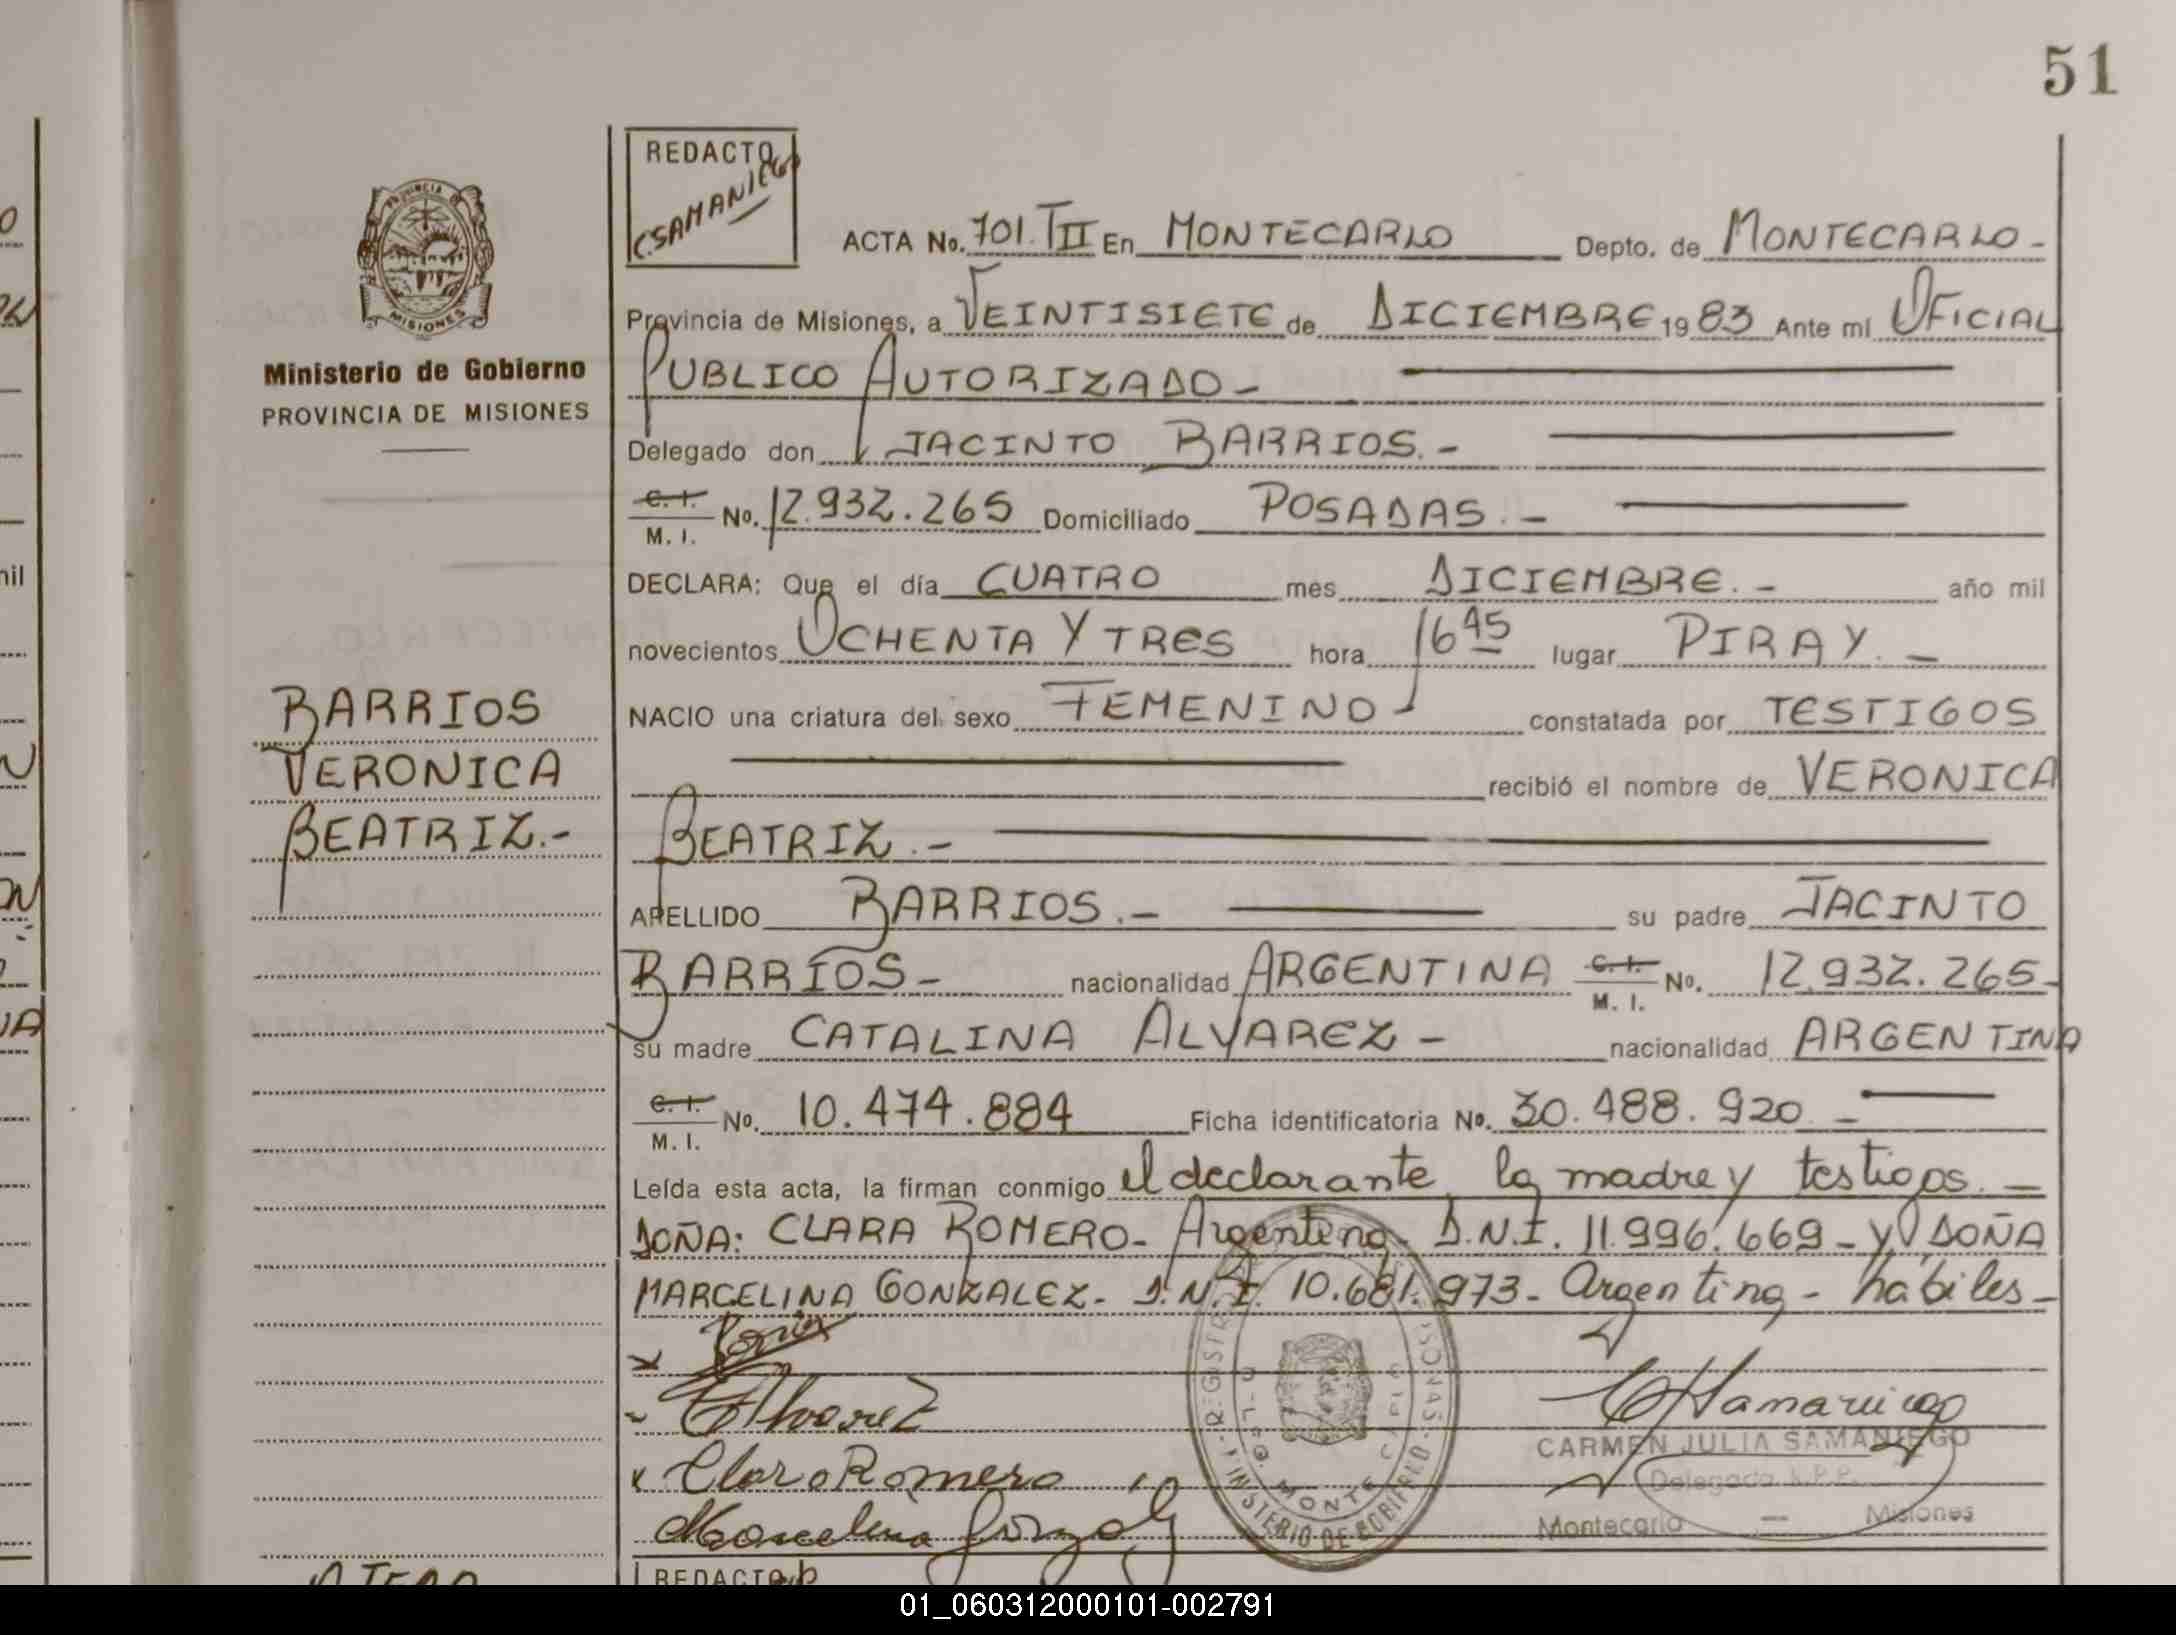 51
REDACTO
CSAMANIEGO
PROVINCIA DE
MISIONES
Ministerio de Gobierno
PROVINCIA DE MISIONES
ACTA No. 701.TII En MONTECARLO Depto. de MONTECARLO-
Provincia de Misiones, a VEINTISIETE de DICIEMBRE 1983 Ante mí OFICIAL
PUBLICO AUTORIZADO-
Delegado don JACINTO BARRIOS.-
C. I. M. I. No. 12.932.265 Domiciliado POSADAS.-
DECLARA: Que el día CUATRO mes DICIEMBRE.- año mil
novecientos OCHENTA Y TRES hora 16 45 lugar PIRAY.-
NACIO una criatura del sexo FEMENINO- constatada por TESTIGOS
recibió el nombre de VERONICA
BEATRIZ.-
APELLIDO BARRIOS.- su padre JACINTO
BARRIOS- nacionalidad ARGENTINA C. I. M. I. No. 12.932.265-
su madre CATALINA ALVAREZ- nacionalidad ARGENTINA
C. I. M. I. No. 10.474.884 Ficha identificatoria No. 30.488.920-
Leída esta acta, la firman conmigo el declarante, la madre y testigos.-
DOÑA: CLARA ROMERO- Argentina- D.N.I. 11.996.669- y DOÑA
MARCELINA GONZALEZ- D.N.I. 10.681.973- Argentina- hábiles-
BARRIOS
VERONICA
BEATRIZ.-
Alvarez
Clara Romero
Marcelina
MINISTERIO DE GOBIERNO
MONTE
CSamaniego
CARMEN JULIA SAMANIEGO
Delegada
Montecarlo - Misiones
REDACTO
01_060312000101-002791